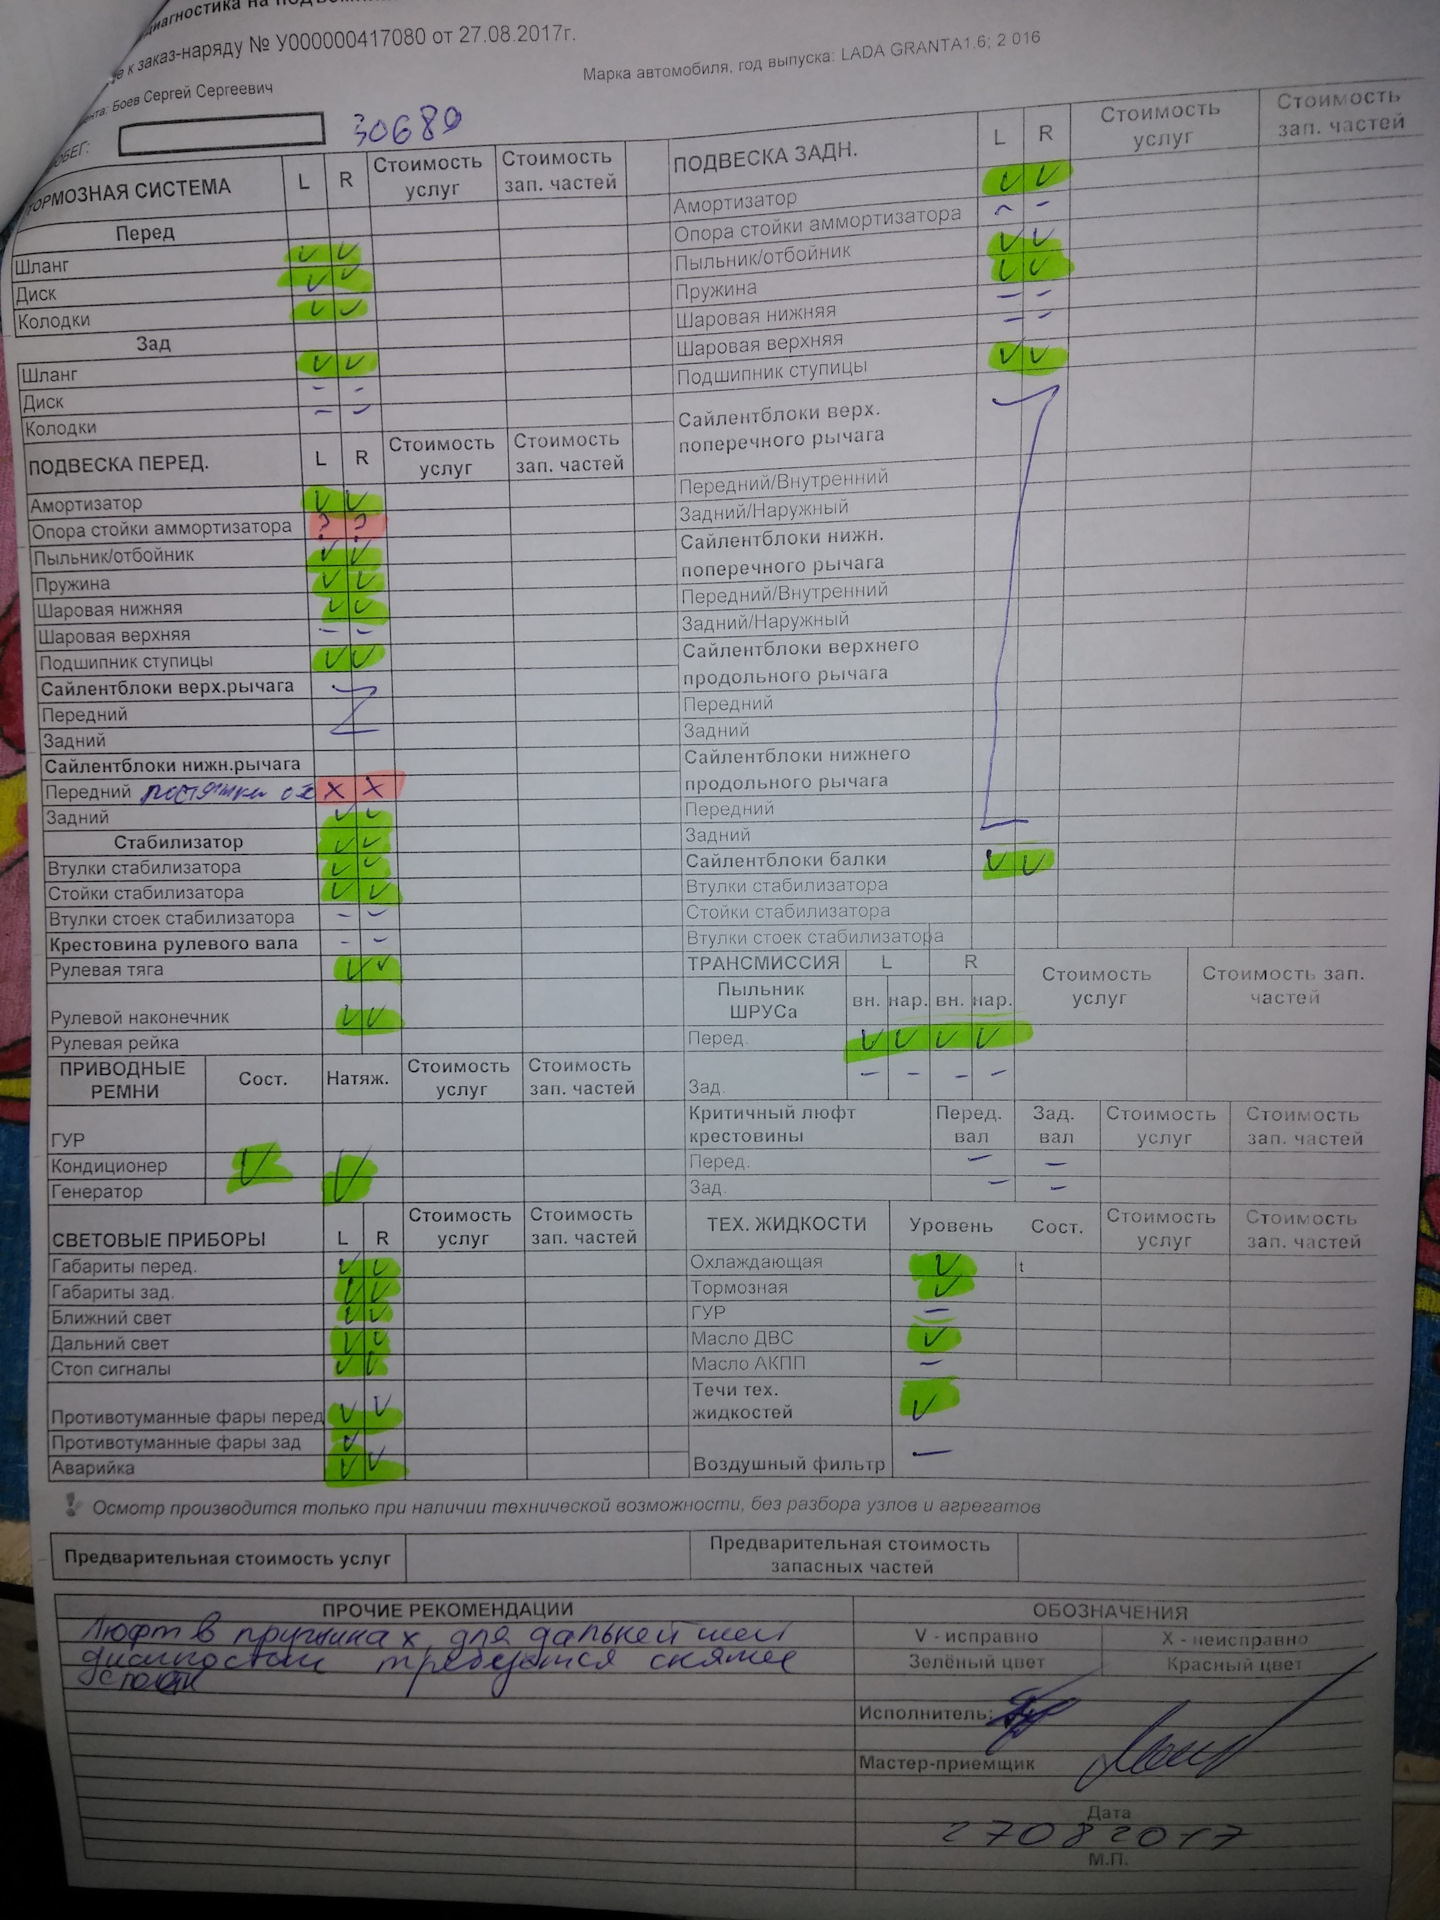 диагностика на
к заказ-наряду № У000000417080 от 27.08.2017г.
Марка автомобиля, год выпуска: LADA GRANTA1.6; 2 016
Боев Сергей Сергеевич
30689
ТОРМОЗНАЯ СИСТЕМА L R Стоимость услуг Стоимость зап. частей
Перед
Шланг V V
Диск V V
Колодки V V
Зад
Шланг V V
Диск - -
Колодки - -
ПОДВЕСКА ПЕРЕД. L R Стоимость услуг Стоимость зап. частей
Амортизатор V V
Опора стойки аммортизатора ? ?
Пыльник/отбойник V V
Пружина V V
Шаровая нижняя V V
Шаровая верхняя - -
Подшипник ступицы V V
Сайлентблоки верх.рычага
Передний
Задний
Сайлентблоки нижн.рычага
Передний X X
Задний V V
Стабилизатор V V
Втулки стабилизатора V V
Стойки стабилизатора V V
Втулки стоек стабилизатора - -
Крестовина рулевого вала - -
Рулевая тяга V V
Рулевой наконечник V V
Рулевая рейка
ПРИВОДНЫЕ РЕМНИ Сост. Натяж. Стоимость услуг Стоимость зап. частей
ГУР
Кондиционер V V
Генератор
СВЕТОВЫЕ ПРИБОРЫ L R Стоимость услуг Стоимость зап. частей
Габариты перед. V V
Габариты зад. V V
Ближний свет V V
Дальний свет V V
Стоп сигналы V V
Противотуманные фары перед V V
Противотуманные фары зад V
Аварийка V V
ПОДВЕСКА ЗАДН. L R Стоимость услуг Стоимость зап. частей
Амортизатор V V
Опора стойки аммортизатора - -
Пыльник/отбойник V V
Пружина V V
Шаровая нижняя - -
Шаровая верхняя - -
Подшипник ступицы V V
Сайлентблоки верх.
поперечного рычага
Передний/Внутренний
Задний/Наружный
Сайлентблоки нижн.
поперечного рычага
Передний/Внутренний
Задний/Наружный
Сайлентблоки верхнего
продольного рычага
Передний
Задний
Сайлентблоки нижнего
продольного рычага
Передний
Задний
Сайлентблоки балки V V
Втулки стабилизатора
Стойки стабилизатора
Втулки стоек стабилизатора
ТРАНСМИССИЯ L R Стоимость услуг Стоимость зап. частей
Пыльник ШРУСа вн. нар. вн. нар.
Перед. V V V V
Зад. - - - -
Критичный люфт крестовины Перед. вал Зад. вал Стоимость услуг Стоимость зап. частей
Перед. - -
Зад. - -
ТЕХ. ЖИДКОСТИ Уровень Сост. Стоимость услуг Стоимость зап. частей
Охлаждающая V t
Тормозная V
ГУР -
Масло ДВС V
Масло АКПП -
Течи тех. жидкостей V
Воздушный фильтр -
Осмотр производится только при наличии технической возможности, без разбора узлов и агрегатов
Предварительная стоимость услуг
Предварительная стоимость запасных частей
ПРОЧИЕ РЕКОМЕНДАЦИИ
Люфт в пружинах, для дальнейшей
диагностики требуется снятие
стойки
ОБОЗНАЧЕНИЯ
V - исправно X - неисправно
Зелёный цвет Красный цвет
Исполнитель:
Мастер-приемщик
Дата
27082017
М.П.